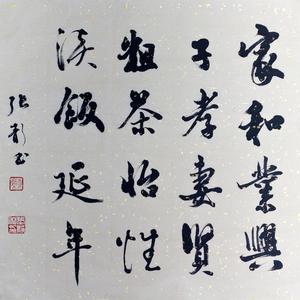 家和業興
子孝妻賢
粗茶怡性
淡飯延年
張彩書